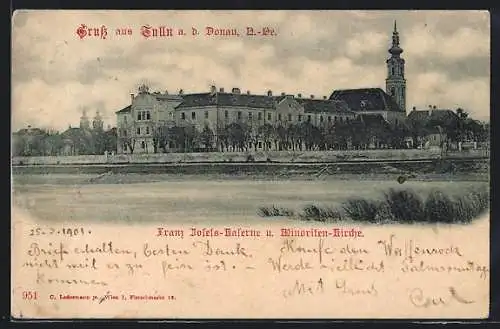 Gruß aus Tulln a. d. Donau, N.-Oe.
Franz Josefs-Kaserne u. Minoriten-Kirche.
25.3.1901.
Brief erhalten, besten Dank. Kaufe den Waffenrock
nicht weil er zu fein ist. - Werde vielleicht Palmsonntag
kommen
Mit Gruß
Carl
951 C. Ledermann jr. Wien I, Fleischmarkt 12.